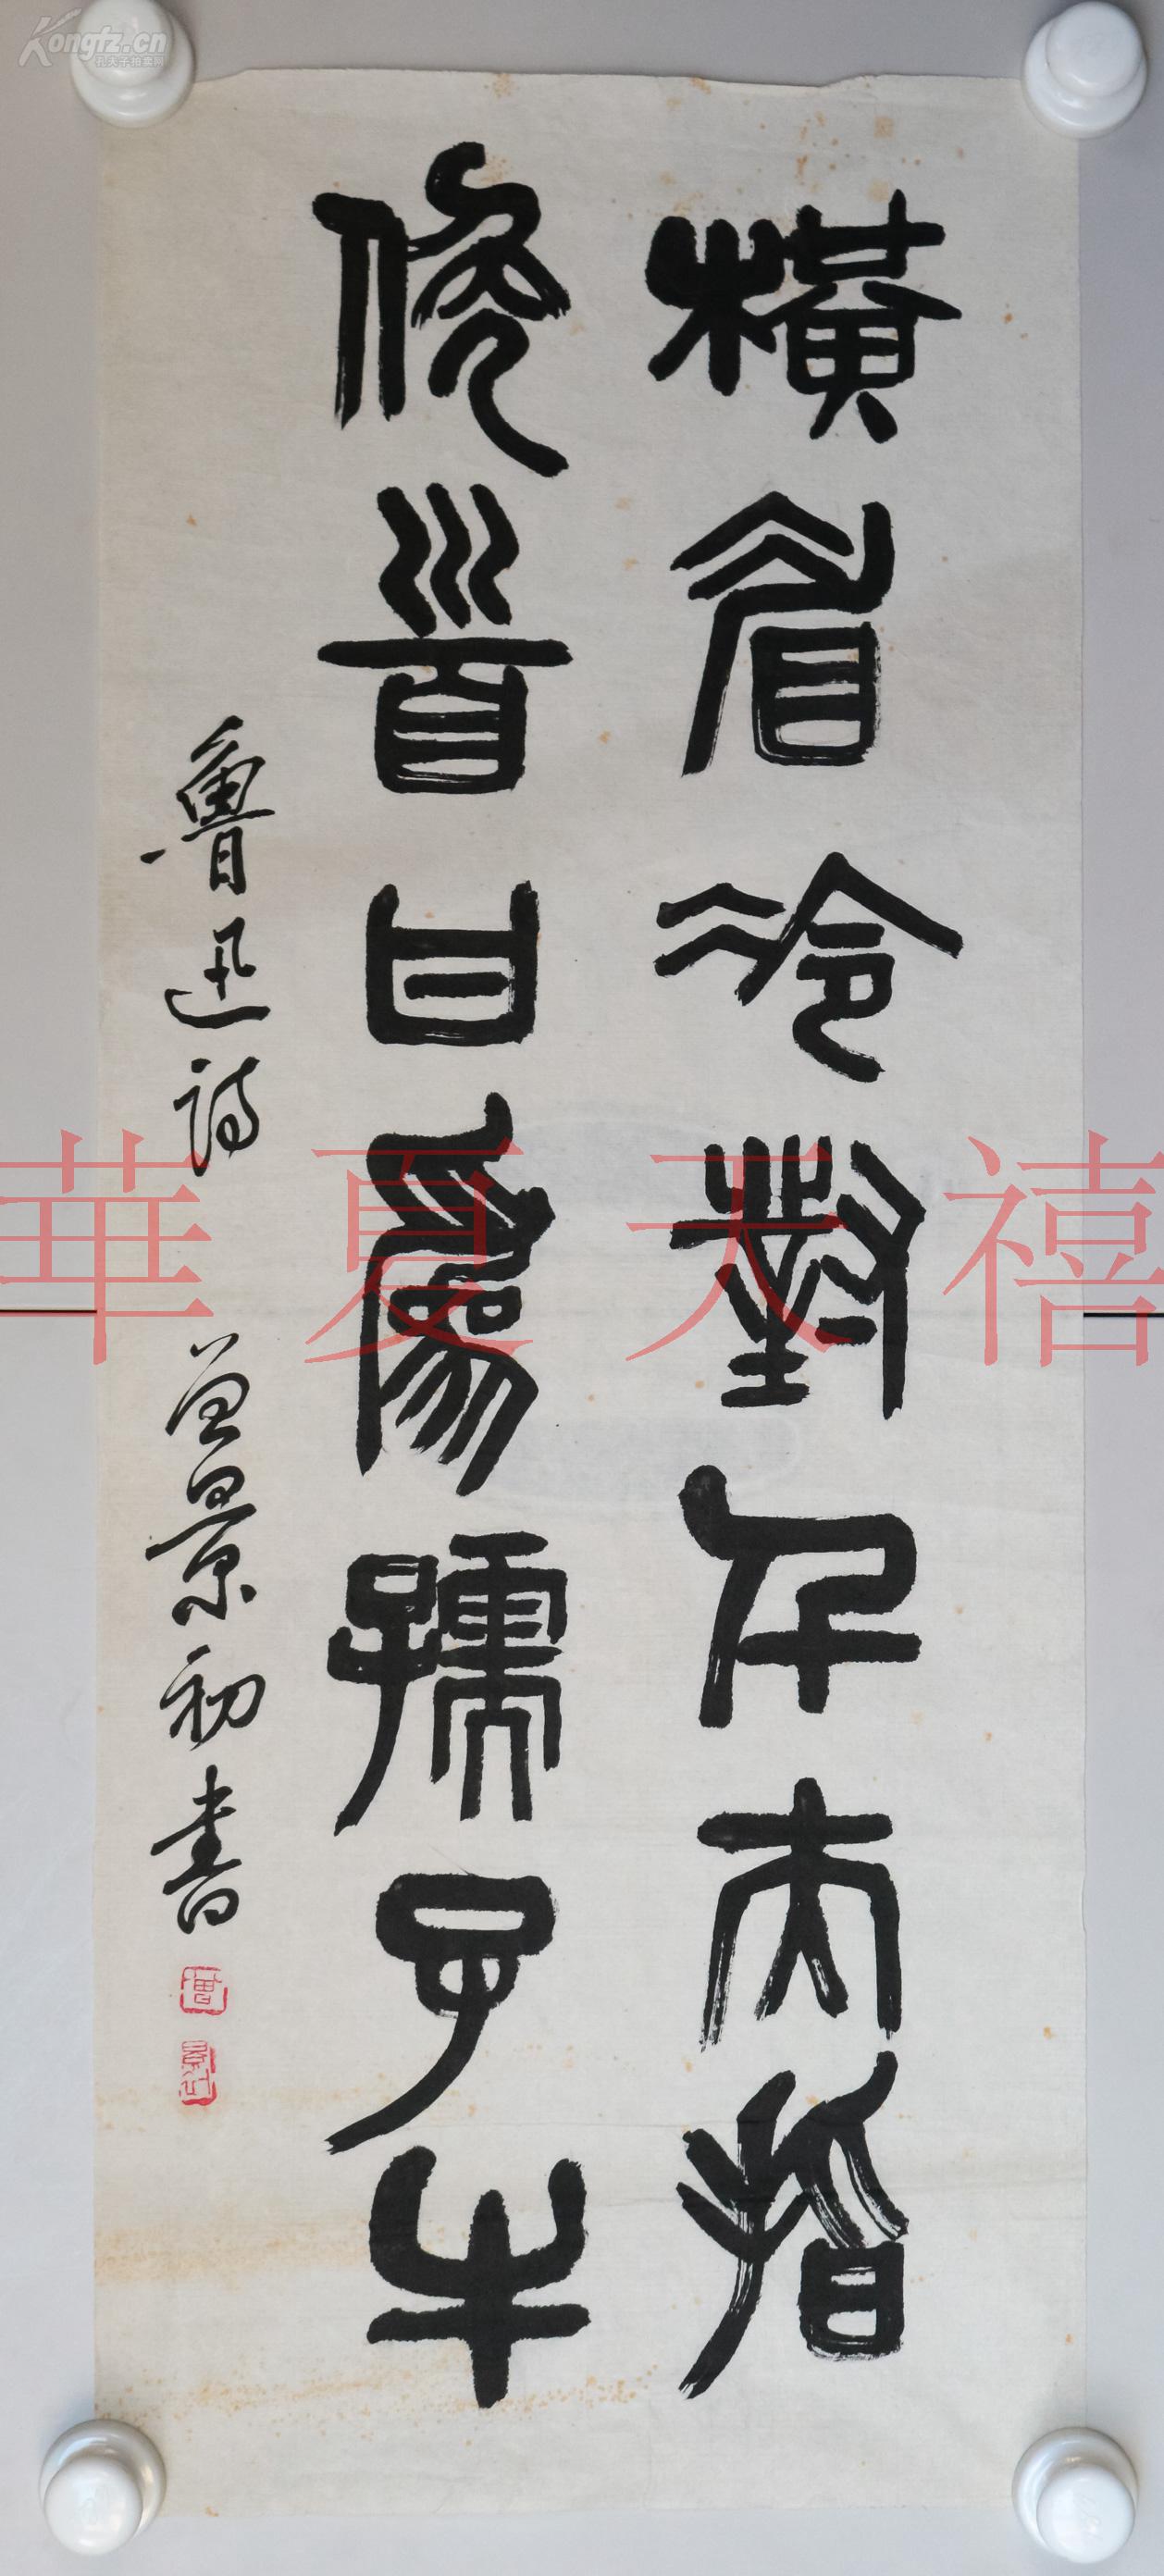 橫眉冷對千夫指
俛首甘爲孺子牛
魯迅詩 曾景初書
曾
景初
華夏天禧
Kongfz.cn
孔夫子拍卖网